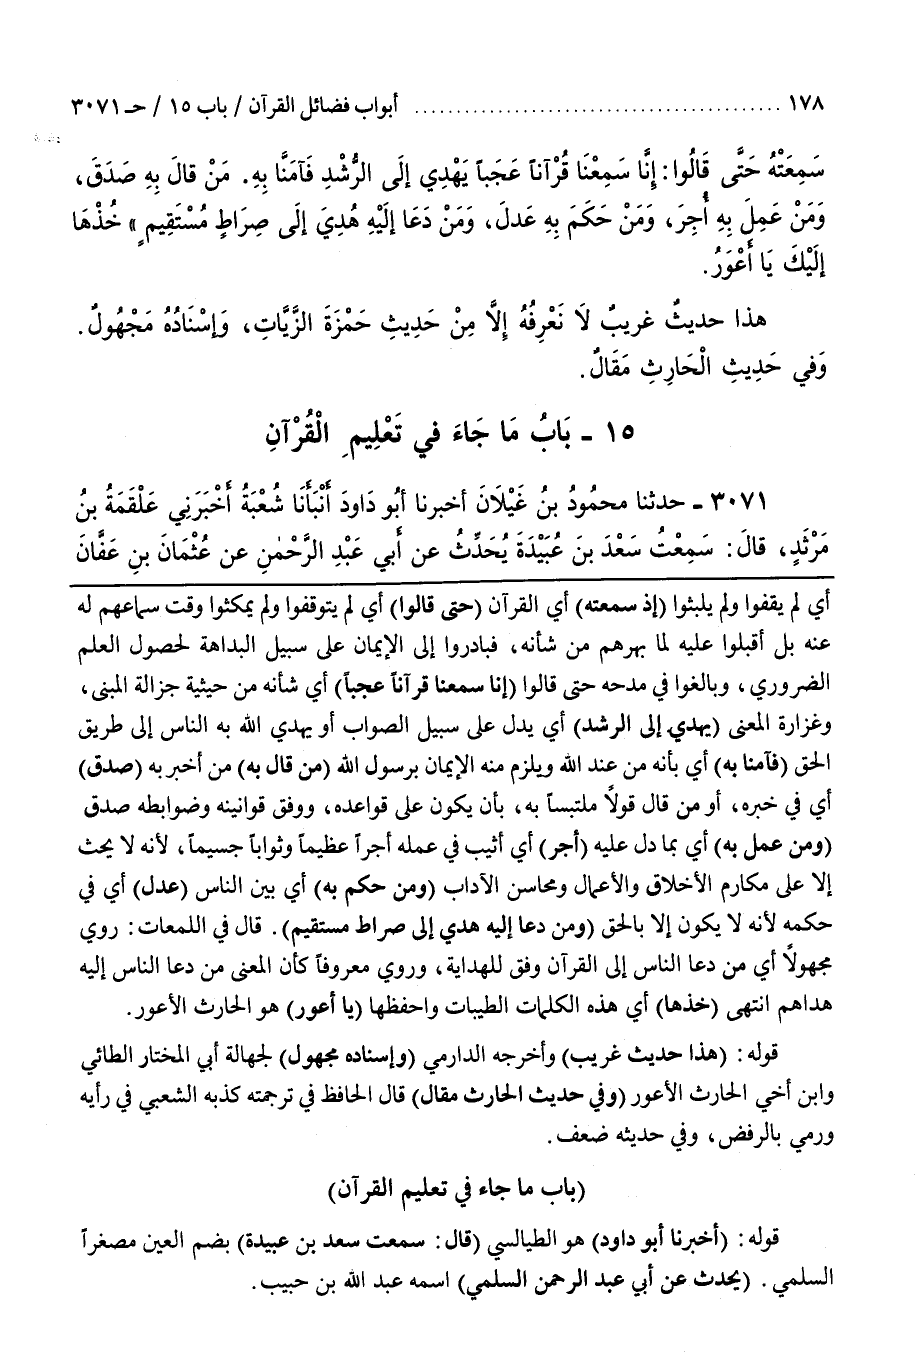 ١٧٨ ............................................ أبواب فضائل القرآن / باب ١٥ / حـ ٣٠٧١
سَمِعَتْهُ حَتَّى قَالُوا: إِنَّا سَمِعْنَا قُرْآناً عَجَباً يَهْدِي إلَى الرُّشْدِ فَآمَنَّا بِهِ. مَنْ قالَ بِهِ صَدَقَ،
وَمَنْ عَمِلَ بِهِ أُجِرَ، وَمَنْ حَكَمَ بِهِ عَدلَ، وَمَنْ دَعَا إلَيْهِ هُدِيَ إلَى صِرَاطٍ مُسْتَقِيمٍ» خُذْهَا
إلَيْكَ يَا أَعْوَرُ.
هذا حديثٌ غريبٌ لَا نَعْرِفُهُ إِلَّا مِنْ حَدِيثِ حَمْزَةَ الزَّيَّاتِ، وَإِسْنَادُهُ مَجْهُولٌ.
وَفي حَدِيثِ الْحَارِثِ مَقَالٌ.
١٥ - بَابُ مَا جَاءَ في تَعْلِيمِ الْقُرْآنِ
٣٠٧١ - حدثنا محمُودُ بنُ غَيْلَانَ أخبرنا أبُو دَاوُدَ أَنْبَأَنَا شُعْبَةُ أَخْبَرَنِي عَلْقَمَةُ بنُ
مَرْثَدٍ، قالَ: سَمِعْتُ سَعْدَ بنَ عُبَيْدَةَ يُحَدِّثُ عن أبي عَبْدِ الرَّحْمٰنِ عن عُثْمَانَ بنِ عَفَّانَ
أي لم يقفوا ولم يلبثوا (إذ سمعته) أي القرآن (حتى قالوا) أي لم يتوقفوا ولم يمكثوا وقت سماعهم له
عنه بل أقبلوا عليه لما بهرهم من شأنه، فبادروا إلى الإيمان على سبيل البداهة لحصول العلم
الضروري، وبالغوا في مدحه حتى قالوا (إنا سمعنا قرآناً عجباً) أي شأنه من حيثية جزالة المبنى،
وغزارة المعنى (يهدي إلى الرشد) أي يدل على سبيل الصواب أو يهدي الله به الناس إلى طريق
الحق (فآمنا به) أي بأنه من عند الله ويلزم منه الإيمان برسول الله (من قال به) من أخبر به (صدق)
أي في خبره، أو من قال قولاً ملتبساً به، بأن يكون على قواعده، ووفق قوانينه وضوابطه صدق
(ومن عمل به) أي بما دل عليه (أجر) أي أثيب في عمله أجراً عظيماً وثواباً جسيماً، لأنه لا يحث
إلا على مكارم الأخلاق والأعمال ومحاسن الآداب (ومن حكم به) أي بين الناس (عدل) أي في
حكمه لأنه لا يكون إلا بالحق (ومن دعا إليه هدي إلى صراط مستقيم). قال في اللمعات: روي
مجهولاً أي من دعا الناس إلى القرآن وفق للهداية، وروي معروفاً كأن المعنى من دعا الناس إليه
هداهم انتهى (خذها) أي هذه الكلمات الطيبات واحفظها (يا أعور) هو الحارث الأعور.
قوله: (هذا حديث غريب) وأخرجه الدارمي (وإسناده مجهول) لجهالة أبي المختار الطائي
وابن أخي الحارث الأعور (وفي حديث الحارث مقال) قال الحافظ في ترجمته كذبه الشعبي في رأيه
ورمي بالرفض، وفي حديثه ضعف.
(باب ما جاء في تعليم القرآن)
قوله: (أخبرنا أبو داود) هو الطيالسي (قال: سمعت سعد بن عبيدة) بضم العين مصغراً
السلمي. (يحدث عن أبي عبد الرحمن السلمي) اسمه عبد الله بن حبيب.